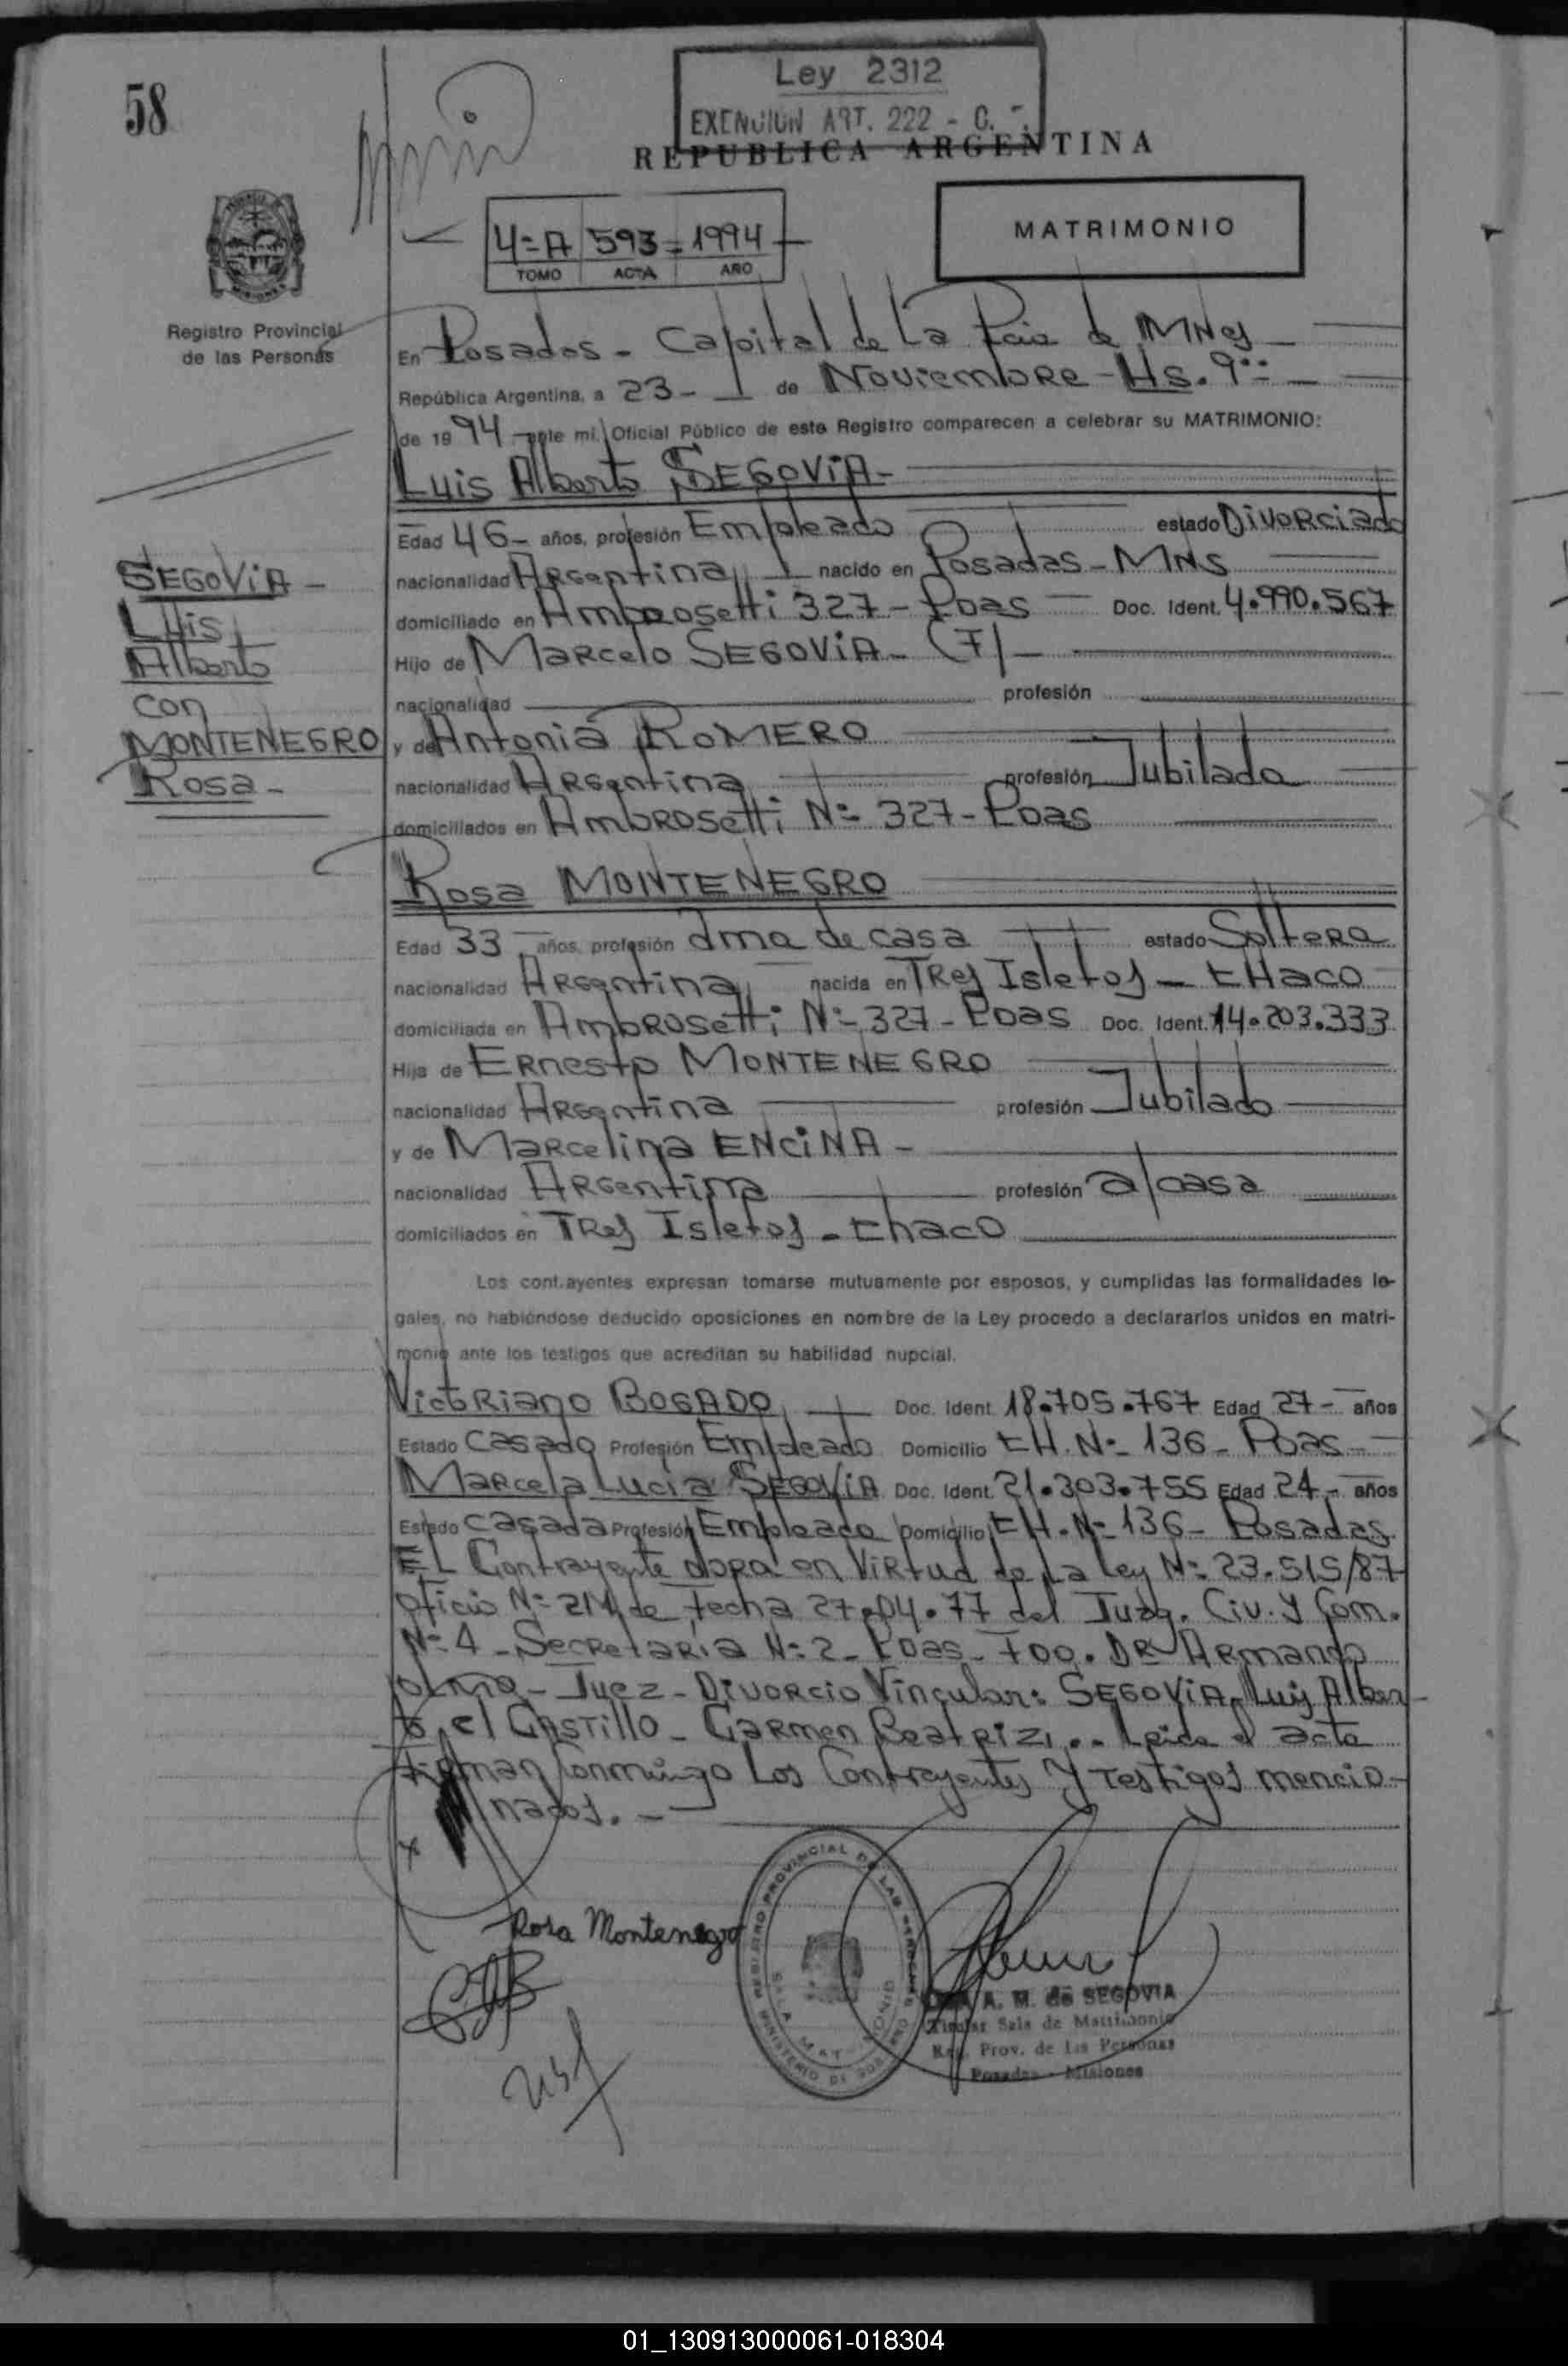 58
Ley 2312
EXENCION ART. 222 - C.
REPUBLICA ARGENTINA
4=A 593= 1994
TOMO ACTA AÑO
MATRIMONIO
Registro Provincial
de las Personas
En Posadas - Capital de La Pcia de MNes
República Argentina, a 23 - de Noviembre - Hs. 9
de 1994 ante mí, Oficial Público de este Registro comparecen a celebrar su MATRIMONIO:
Luis Alberto SEGOVIA -
Edad 46 - años, profesión Empleado estado Divorciado
nacionalidad Argentina nacido en Posadas - MNS
domiciliado en Ambrosetti 327 - Pdas Doc. Ident. 4.990.567
Hijo de Marcelo SEGOVIA - (F) -
nacionalidad profesión
y de Antonia ROMERO
nacionalidad Argentina profesión Jubilada
domiciliados en Ambrosetti Nº 327 - Pdas
SEGOVIA -
Luis
Alberto
con
MONTENEGRO
Rosa -
Rosa MONTENEGRO
Edad 33 años, profesión ama de casa estado Soltera
nacionalidad Argentina nacida en Tres Isletas - CHaco
domiciliada en Ambrosetti Nº 327 - Pdas Doc. Ident. 14.203.333
Hija de Ernesto MONTENEGRO
nacionalidad Argentina profesión Jubilado
y de Marcelina ENCINA -
nacionalidad Argentina profesión a/casa
domiciliados en Tres Isletas - Chaco
Los contrayentes expresan tomarse mutuamente por esposos, y cumplidas las formalidades le-
gales, no habiéndose deducido oposiciones en nombre de la Ley procedo a declararlos unidos en matri-
monio ante los testigos que acreditan su habilidad nupcial.
Victoriano BOGADO Doc. Ident. 18.705.767 Edad 27 - años
Estado Casado Profesión Empleado Domicilio CH. Nº 136 - Pdas -
Marcela Lucia SEGOVIA Doc. Ident. 21.303.755 Edad 24 - años
Estado Casada Profesión Empleada Domicilio CH. Nº 136 - Posadas
El Contrayente obra en Virtud de La Ley Nº 23.515/87
Oficio Nº de fecha 27.04.77 del Juzg. Civ. y Com.
Nº 4 - Secretaría Nº 2 - Pdas - Fdo. Dr Armando
- Juez - Divorcio Vincular: SEGOVIA, Luis Alber
to c/ CASTILLO - Carmen Beatriz, .. Leida el acta
Firman conmigo Los Contrayentes y Testigos mencio-
nados. -
Rosa Montenegro
REGISTRO PROVINCIAL DE LAS PERSONAS
A. M. de SEGOVIA
Titular Sala de Matrimonio
Reg. Prov. de las Personas
Posadas - Misiones
01_130913000061-018304